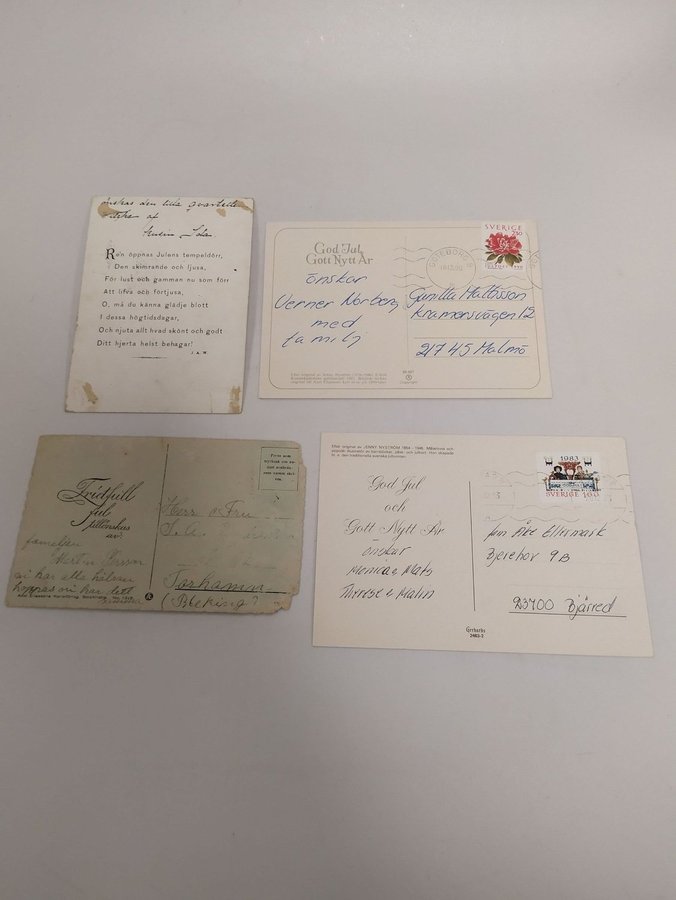 önskas den lilla qvartetten
af
Ren öppnas Julens tempeldörr,
Den skimrande och ljusa,
För lust och gamman nu som förr
Att lifva och förtjusa,
O, må de känna glädje blott
I dessa högtidsdagar,
Och njuta allt hvad skönt och godt
Ditt hjerta helst behagar!
God Jul
Gott Nytt År
önskar
Verner Norberg
med
familj
SVERIGE
GÖTEBORG
Gunilla Mattisson
Kramersvägen 12
21745 Malmö
Fridfull
jul
tillönskas
av:
familjen
vi har alla hälsan
hoppas ni har det
Herr o Fru
Torhamn
(Blekinge)
Efter original av JENNY NYSTRÖM 1854 - 1946. Målarinna och
God Jul
och
Gott Nytt År
önskar
Monica o Mats
Therese o Malin
1983
SVERIGE
Åke Ellermark
Bjerehov 9B
23700 Bjärred
Gerhards
2463-3